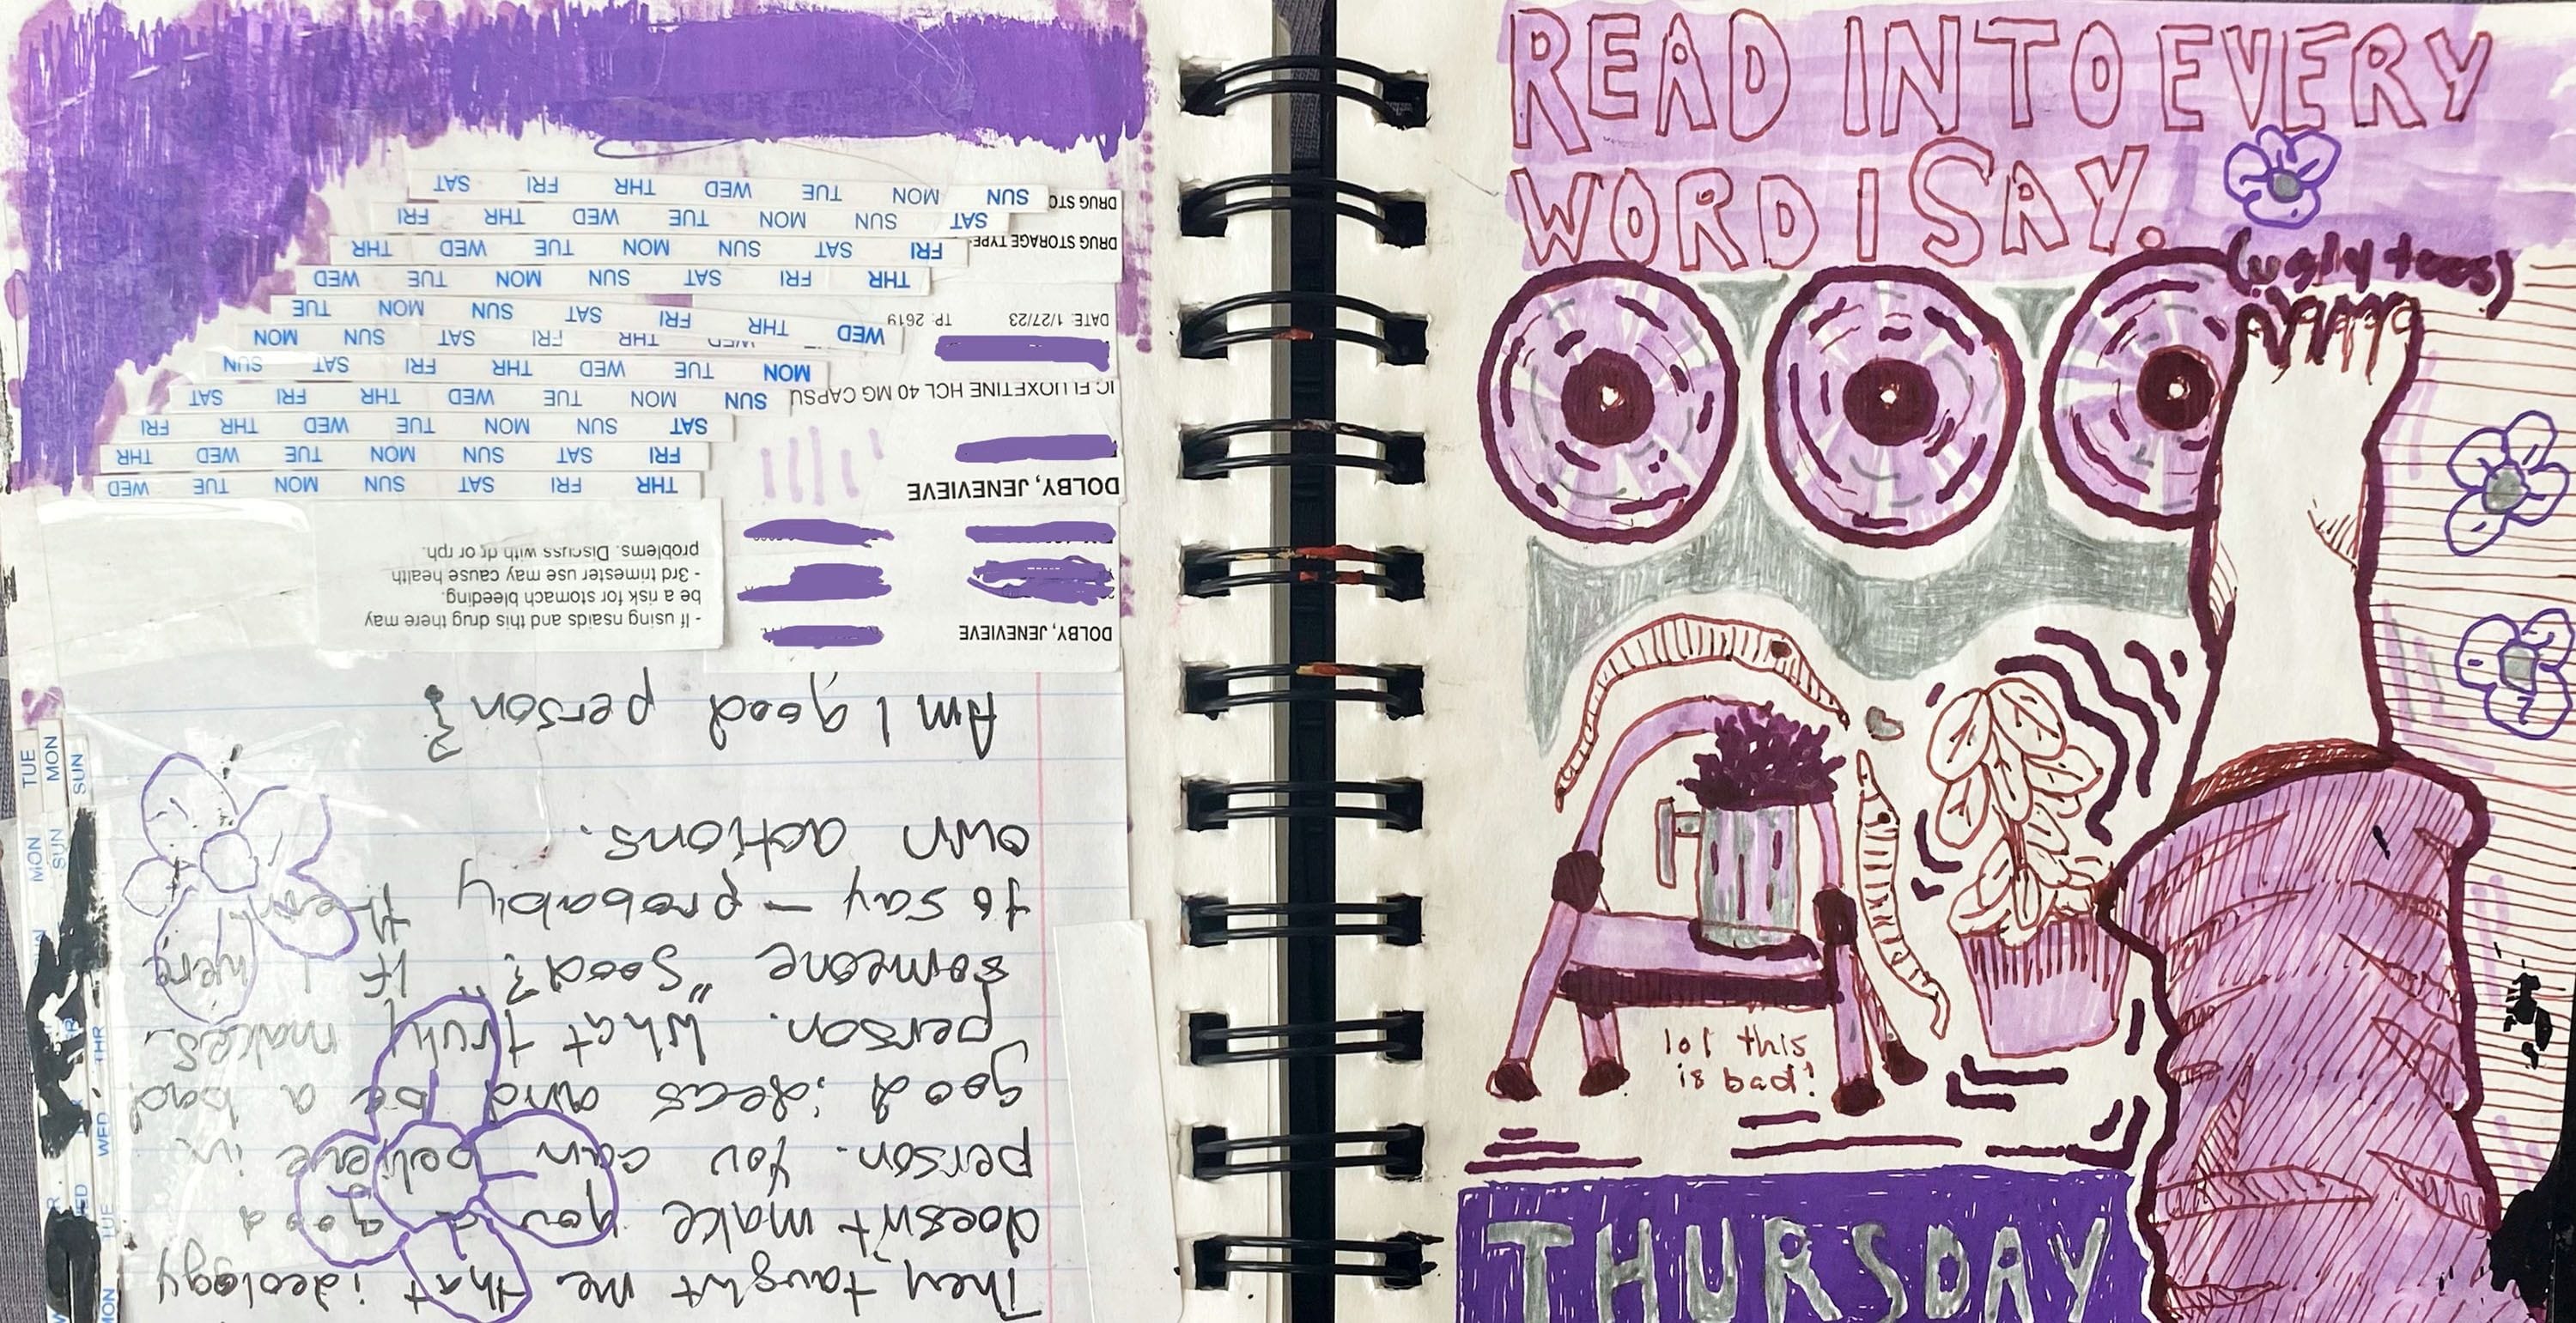 They taught me that ideology
doesn't make you a good
person. You can believe in
good ideas and be a bad
person. What truly makes
someone "good?" If I were
to say — probably their
own actions.
Am I good person?
DOLBY, JENEVIEVE
- If using nsaids and this drug there may
be a risk for stomach bleeding.
- 3rd trimester use may cause health
problems. Discuss with dr or rph.
DOLBY, JENEVIEVE
THR FRI SAT SUN MON TUE WED
FRI SAT SUN MON TUE WED THR
SAT SUN MON TUE WED THR FRI
IC FLUOXETINE HCL 40 MG CAPSU
SUN MON TUE WED THR FRI SAT
MON TUE WED THR FRI SAT SUN
WED THR FRI SAT SUN MON
DATE: 1/27/23 TP: 2619
WED THR FRI SAT SUN MON TUE
THR FRI SAT SUN MON TUE WED
DRUG STORAGE TYPE
FRI SAT SUN MON TUE WED THR
SAT SUN MON TUE WED THR FRI
DRUG STO
SUN MON TUE WED THR FRI SAT
MON TUE
SUN MON
SUN
MON TUE WED THR
READ INTO EVERY
WORD I SAY.
(ugly toes)
lol this
is bad!
THURSDAY